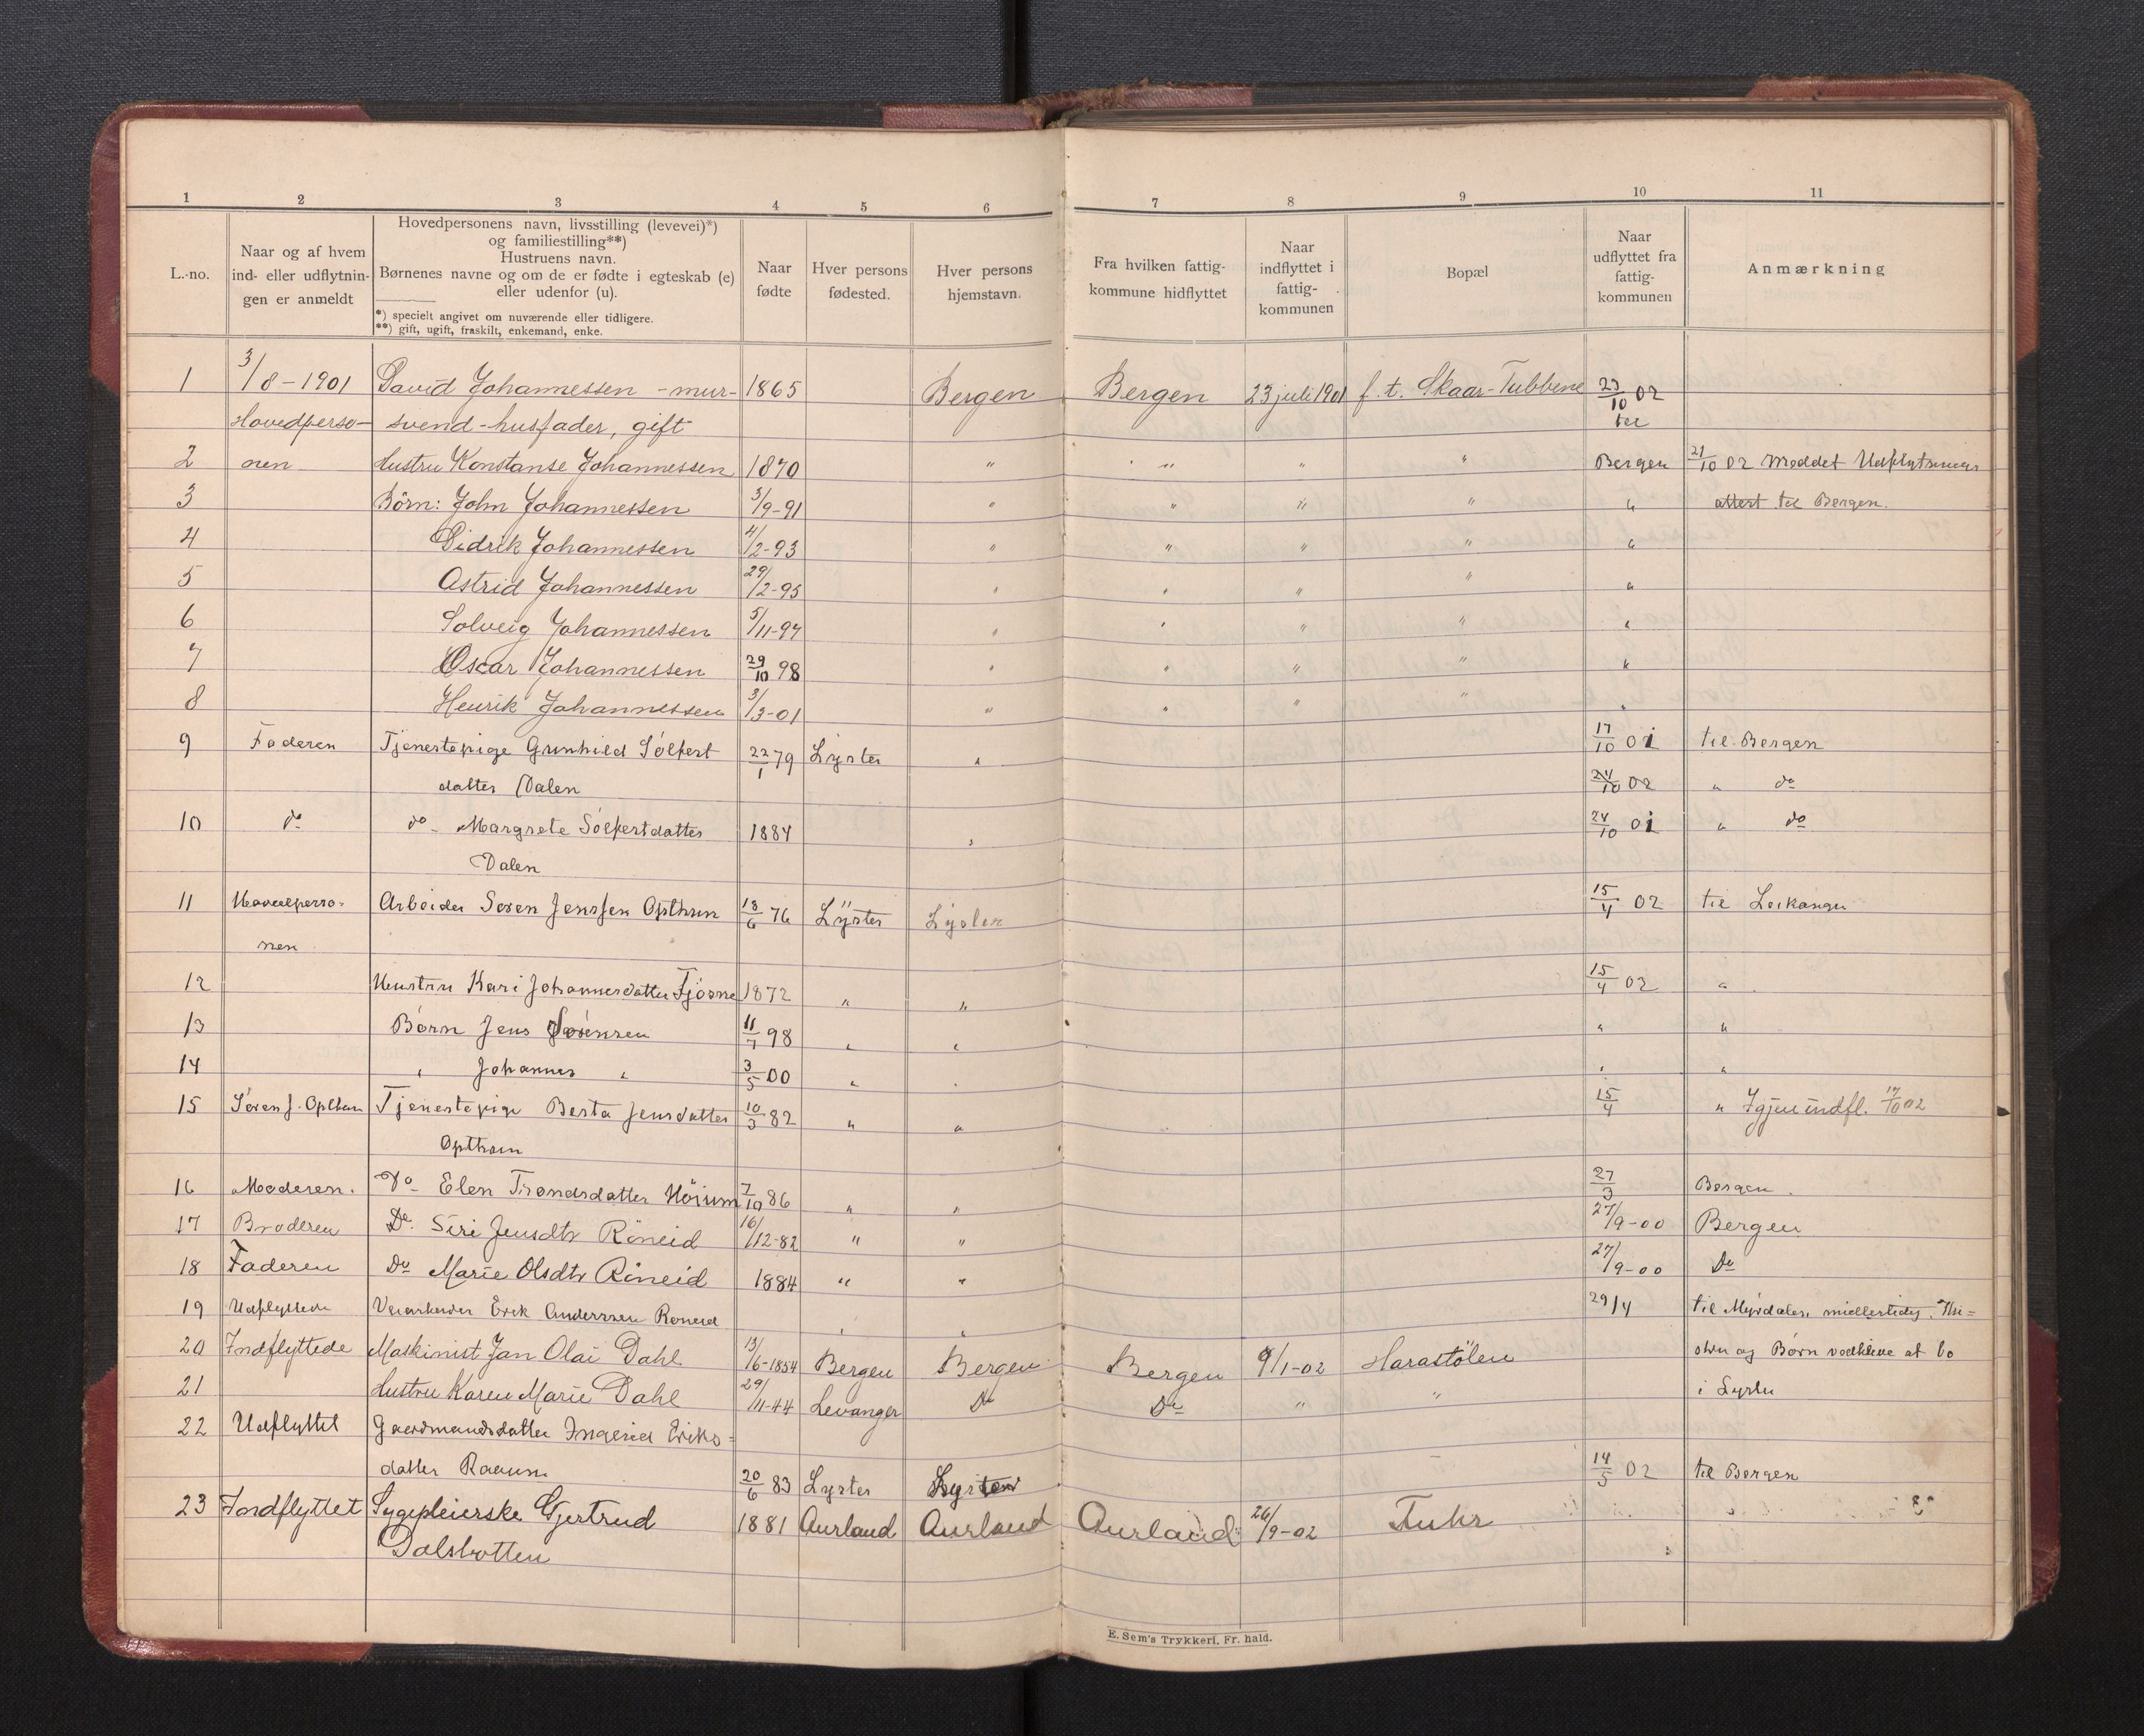 1 2 3 4 5 6 7 8 9 10 11
L.-no.
Naar og af hvem
ind- eller udflytnin-
gen er anmeldt
Hovedpersonens navn, livsstilling (levevei)*)
og familiestilling**)
Hustruens navn.
Børnenes navne og om de er fødte i egteskab (e)
eller udenfor (u).
*) specielt angivet om nuværende eller tidligere.
**) gift, ugift, fraskilt, enkemand, enke.
Naar
fødte
Hver persons
fødested.
Hver persons
hjemstavn.
Fra hvilken fattig-
kommune hidflyttet
Naar
indflyttet i
fattig-
kommunen
Bopæl
Naar
udflyttet fra
fattig-
kommunen
Anmærkning
1 3/8-1901 David Johannessen - mur- 1865 Bergen Bergen 23 juli 1901 f. t. Skaar-Tubbene 23/10 02
Hovedperso- svend - husfader, gift til
2 nen Hustru Konstanse Johannessen 1870 " " " " Bergen 21/10 02 Meddet
3 Börn: John Johannessen 3/9-91 " " " " " attest til Bergen.
4 Didrik Johannessen 4/2-93 " " " " "
5 Astrid Johannessen 29/2-95 " " " " "
6 Solveig Johannessen 5/11-97 " " " " "
7 Oscar Johannessen 29/10 98 " " " " "
8 Henrik Johannessen 3/3-01 " " " " "
9 Faderen Tjenestepige Gunhild Sölfert 22/1 79 Lyster " 17/10 01 til Bergen
datter Dalen 24/10 02 " do
10 do do Margrete Sölfertdatter 1884 " 24/10 01 " do
Dalen
11 Hovedperso- Arbeider Søren Jenssen Opthun 18/6 76 Lyster Lyster 15/4 02 til Leikanger
nen
12 Hustru Kari Johannesdatter Fjösne 1872 " " 15/4 02 "
13 Børn Jens Sørensen 11/7 98 " " " "
14 " Johannes " 3/5 00 " " " "
15 Søren J. Opthun Tjenestepige Berta Jensdatter 10/3 82 " " 15/4 " Igjen indfl. 17/10 02
Opthun
16 Moderen. Do Elen Trondsdatter Höium 7/10 86 " " 27/3 Bergen.
17 Broderen Do. Siri Jensdtr Röneid 16/12-82 " " 27/9-00 Bergen
18 Faderen Do Marie Olsdtr Röneid 1884 " " 27/9-00 Do
19 Udflyttede Veiarbeider Erik Anderssen Røneid " " 29/4 til Myrdalen, midlertidig. Hu=
20 Indflyttede Maskinist Jan Olai Dahl 13/6-1854 Bergen Bergen Bergen 9/1-02 Harastölen stru og Børn vedblive at bo
21 Hustru Karen Marie Dahl 29/11-44 Levanger Do Do " " i Lyster
22 Udflyttet Gaardmandsdatter Ingerid Eriks-
datter Raaum 20/6 83 Lyster Lyster 14/5 02 til Bergen
23 Indflyttet Sygepleierske Gjertrud 1881 Aurland Aurland Aurland 26/9-02 Fuhr
Dalsbotten
E. Sem's Trykkeri, Fr. hald.